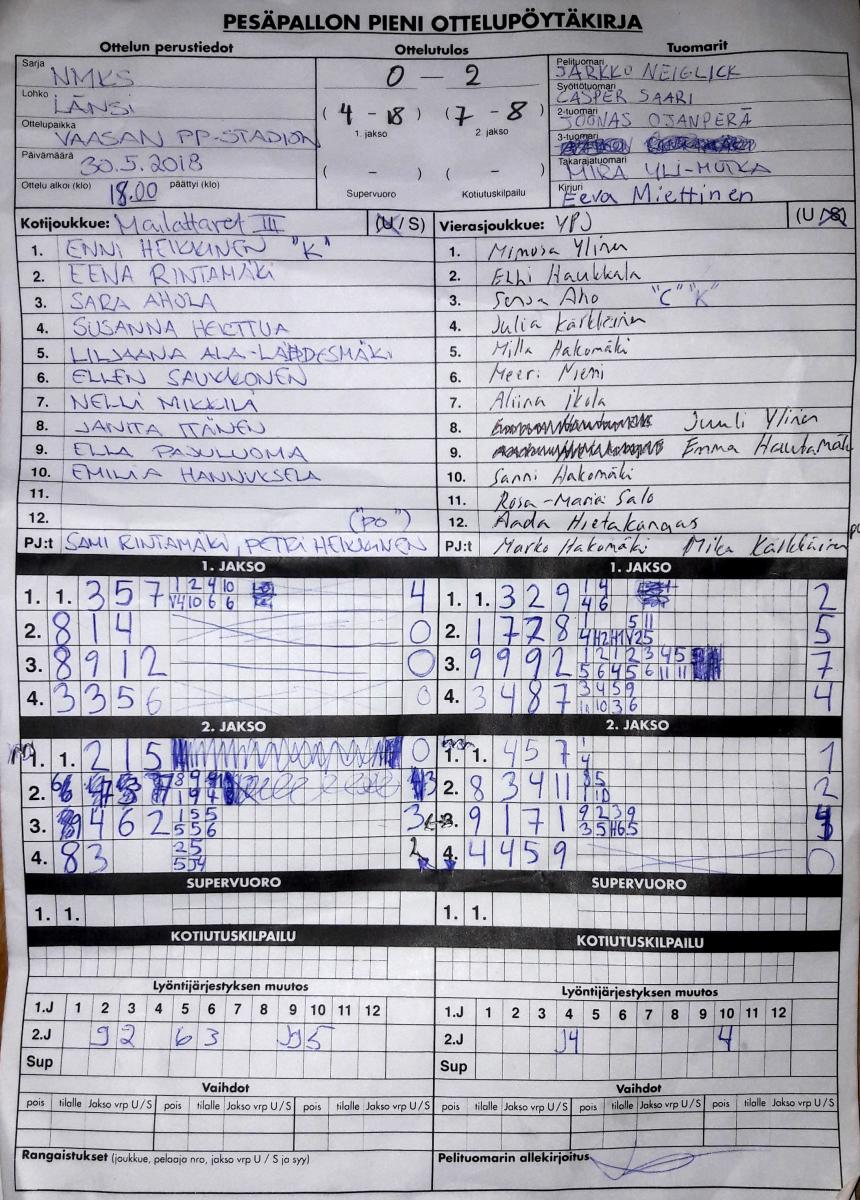 PESÄPALLON PIENI OTTELUPÖYTÄKIRJA
Ottelun perustiedot Ottelutulos Tuomarit
Sarja NMKS
Lohko LÄNSI
Ottelupaikka VAASAN PP-STADION
Päivämäärä 30.5.2018
Ottelu alkoi (klo) 18.00 päättyi (klo)
0 - 2
(4 - 18) (7 - 8)
1. jakso 2. jakso
( - ) ( - )
Supervuoro Kotiutuskilpailu
Pelituomari JARKKO NEIGLICK
Syöttötuomari CASPER SAARI
2-tuomari JOONAS OJANPERÄ
3-tuomari
Takarajatuomari MIRA YLI-HUTKA
Kirjuri Eeva Miettinen
Kotijoukkue: Mailattaret III (U / S)
1. ENNI HEIKKINEN "K"
2. EENA RINTAMÄKI
3. SARA AHOLA
4. SUSANNA HERTTUA
5. LILJAANA ALA-LAHDESMÄKI
6. ELLEN SAUKKONEN
7. NELLI MIKKILÄ
8. JANITA ITÄNEN
9. ELLA PAJULUOMA
10. EMILIA HANNUKSELA
11.
12. ("PO")
PJ:t SAMI RINTAMÄKI, PETRI HEIKKINEN
Vierasjoukkue: YPJ (U / S)
1. Mimosa Ylinen
2. Elli Haukkala
3. Sonja Aho "C" "K"
4. Julia Karkkainen
5. Milla Hakomäki
6. Meeri Niemi
7. Aliina Ikola
8. Juuli Ylinen
9. Emma Hautamäki
10. Sanni Hakomäki
11. Rosa-Maria Salo
12. Aada Hietakangas
PJ:t Marko Hakomäki Mika Karkkainen
1. JAKSO
1. 1. 3 5 7 4
2. 8 1 4 0
3. 8 9 1 2 0
4. 3 3 5 6 0
1. JAKSO
1. 1. 3 2 9 2
2. 1 7 7 8 5
3. 9 9 9 2 7
4. 3 4 8 7 4
2. JAKSO
1. 1. 2 1 5 0
2. 3
3. 4 6 2 3
4. 8 3 2
2. JAKSO
1. 1. 4 5 7 1
2. 8 3 4 11 2
3. 9 1 7 1
4. 4 4 5 9 0
SUPERVUORO
1. 1.
SUPERVUORO
1. 1.
KOTIUTUSKILPAILU
KOTIUTUSKILPAILU
Lyöntijärjestyksen muutos
1.J 1 2 3 4 5 6 7 8 9 10 11 12
2.J 9 2 6 3 J9 5
Sup
Lyöntijärjestyksen muutos
1.J 1 2 3 4 5 6 7 8 9 10 11 12
2.J J4 4
Sup
Vaihdot
pois tilalle Jakso vrp U / S pois tilalle Jakso vrp U / S pois tilalle Jakso vrp U / S
Vaihdot
pois tilalle Jakso vrp U / S pois tilalle Jakso vrp U / S pois tilalle Jakso vrp U / S
Rangaistukset (joukkue, pelaaja nro, jakso vrp U / S ja syy)
Pelituomarin allekirjoitus